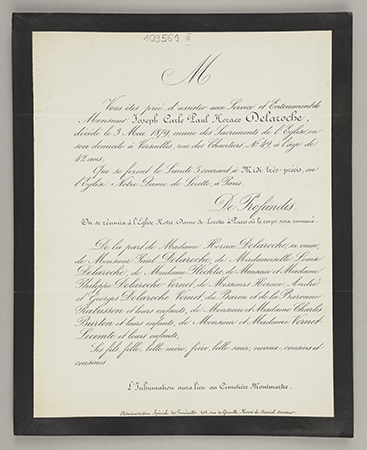 109561
M
Vous êtes prié d'assister aux Service et Enterrement de
Monsieur Joseph Carle Paul Horace Delaroche,
décédé le 3 Mai 1879, muni des Sacrements de l'Eglise, en
son domicile à Versailles, rue des Chantiers, N° 49, à l'âge de
42 ans,
Qui se feront le Lundi 5 courant, à Midi très-précis, en
l'Eglise Notre Dame de Lorette, à Paris.
De Profundis.
On se réunira à l'Eglise Notre Dame de Lorette à Paris où le corps sera ramené.
De la part de Madame Horace Delaroche, sa veuve,
de Monsieur Paul Delaroche, de Mademoiselle Louise
Delaroche, de Madame de Monsieur et Madame
Philippe Delaroche Vernet, de Messieurs Horace, André
et Georges Delaroche Vernet, du Baron et de la Baronne
Rabusson et leurs enfants, de Monsieur et Madame Charles
Burton et leurs enfants, de Monsieur et Madame Vernet
Lecomte et leurs enfants,
Ses fils, fille, belle mère, frère, belle sœur, neveux, cousins et
cousines.
L'Inhumation aura lieu au Cimetière Montmartre.
Administration Spéciale des Funérailles, rue de